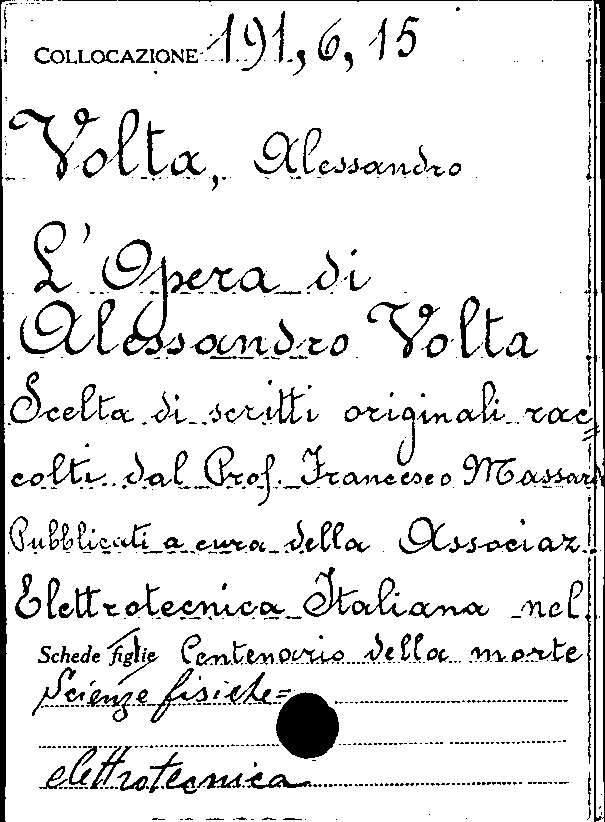 COLLOCAZIONE 191, 6, 15
Volta, Alessandro
L'Opera di
Alessandro Volta
Scelta di scritti originali rac=
colti dal Prof. Francesco Massardi
Pubblicati a cura della Associaz.
Elettrotecnica Italiana nel
Schede figlie Centenario della morte
Scienze fisiche=
elettrotecnica